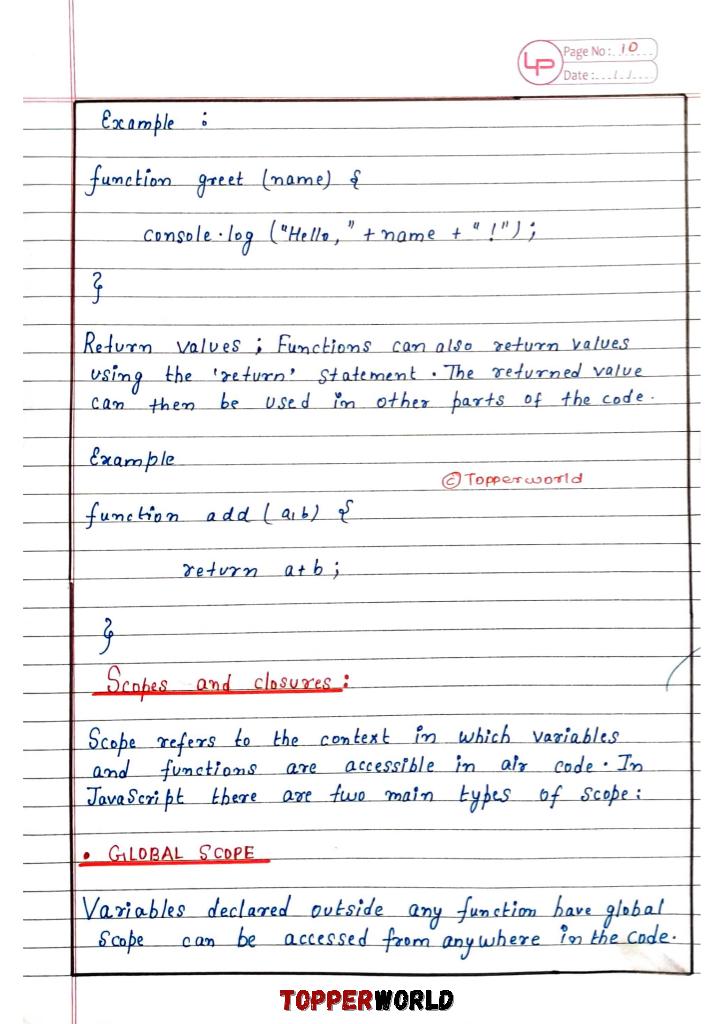 LP
Page No: 10
Date: / /
Example :
function greet (name) {
console.log ("Hello," + name + "!");
}
Return values ; Functions can also return values
using the 'return' statement. The returned value
can then be used in other parts of the code.
Example
© Topperworld
function add (a,b) {
return a+b ;
}
Scopes and closures :
Scope refers to the context in which variables
and functions are accessible in air code. In
JavaScript there are two main types of scope :
• GLOBAL SCOPE
Variables declared outside any function have global
scope can be accessed from anywhere in the code.
TOPPERWORLD